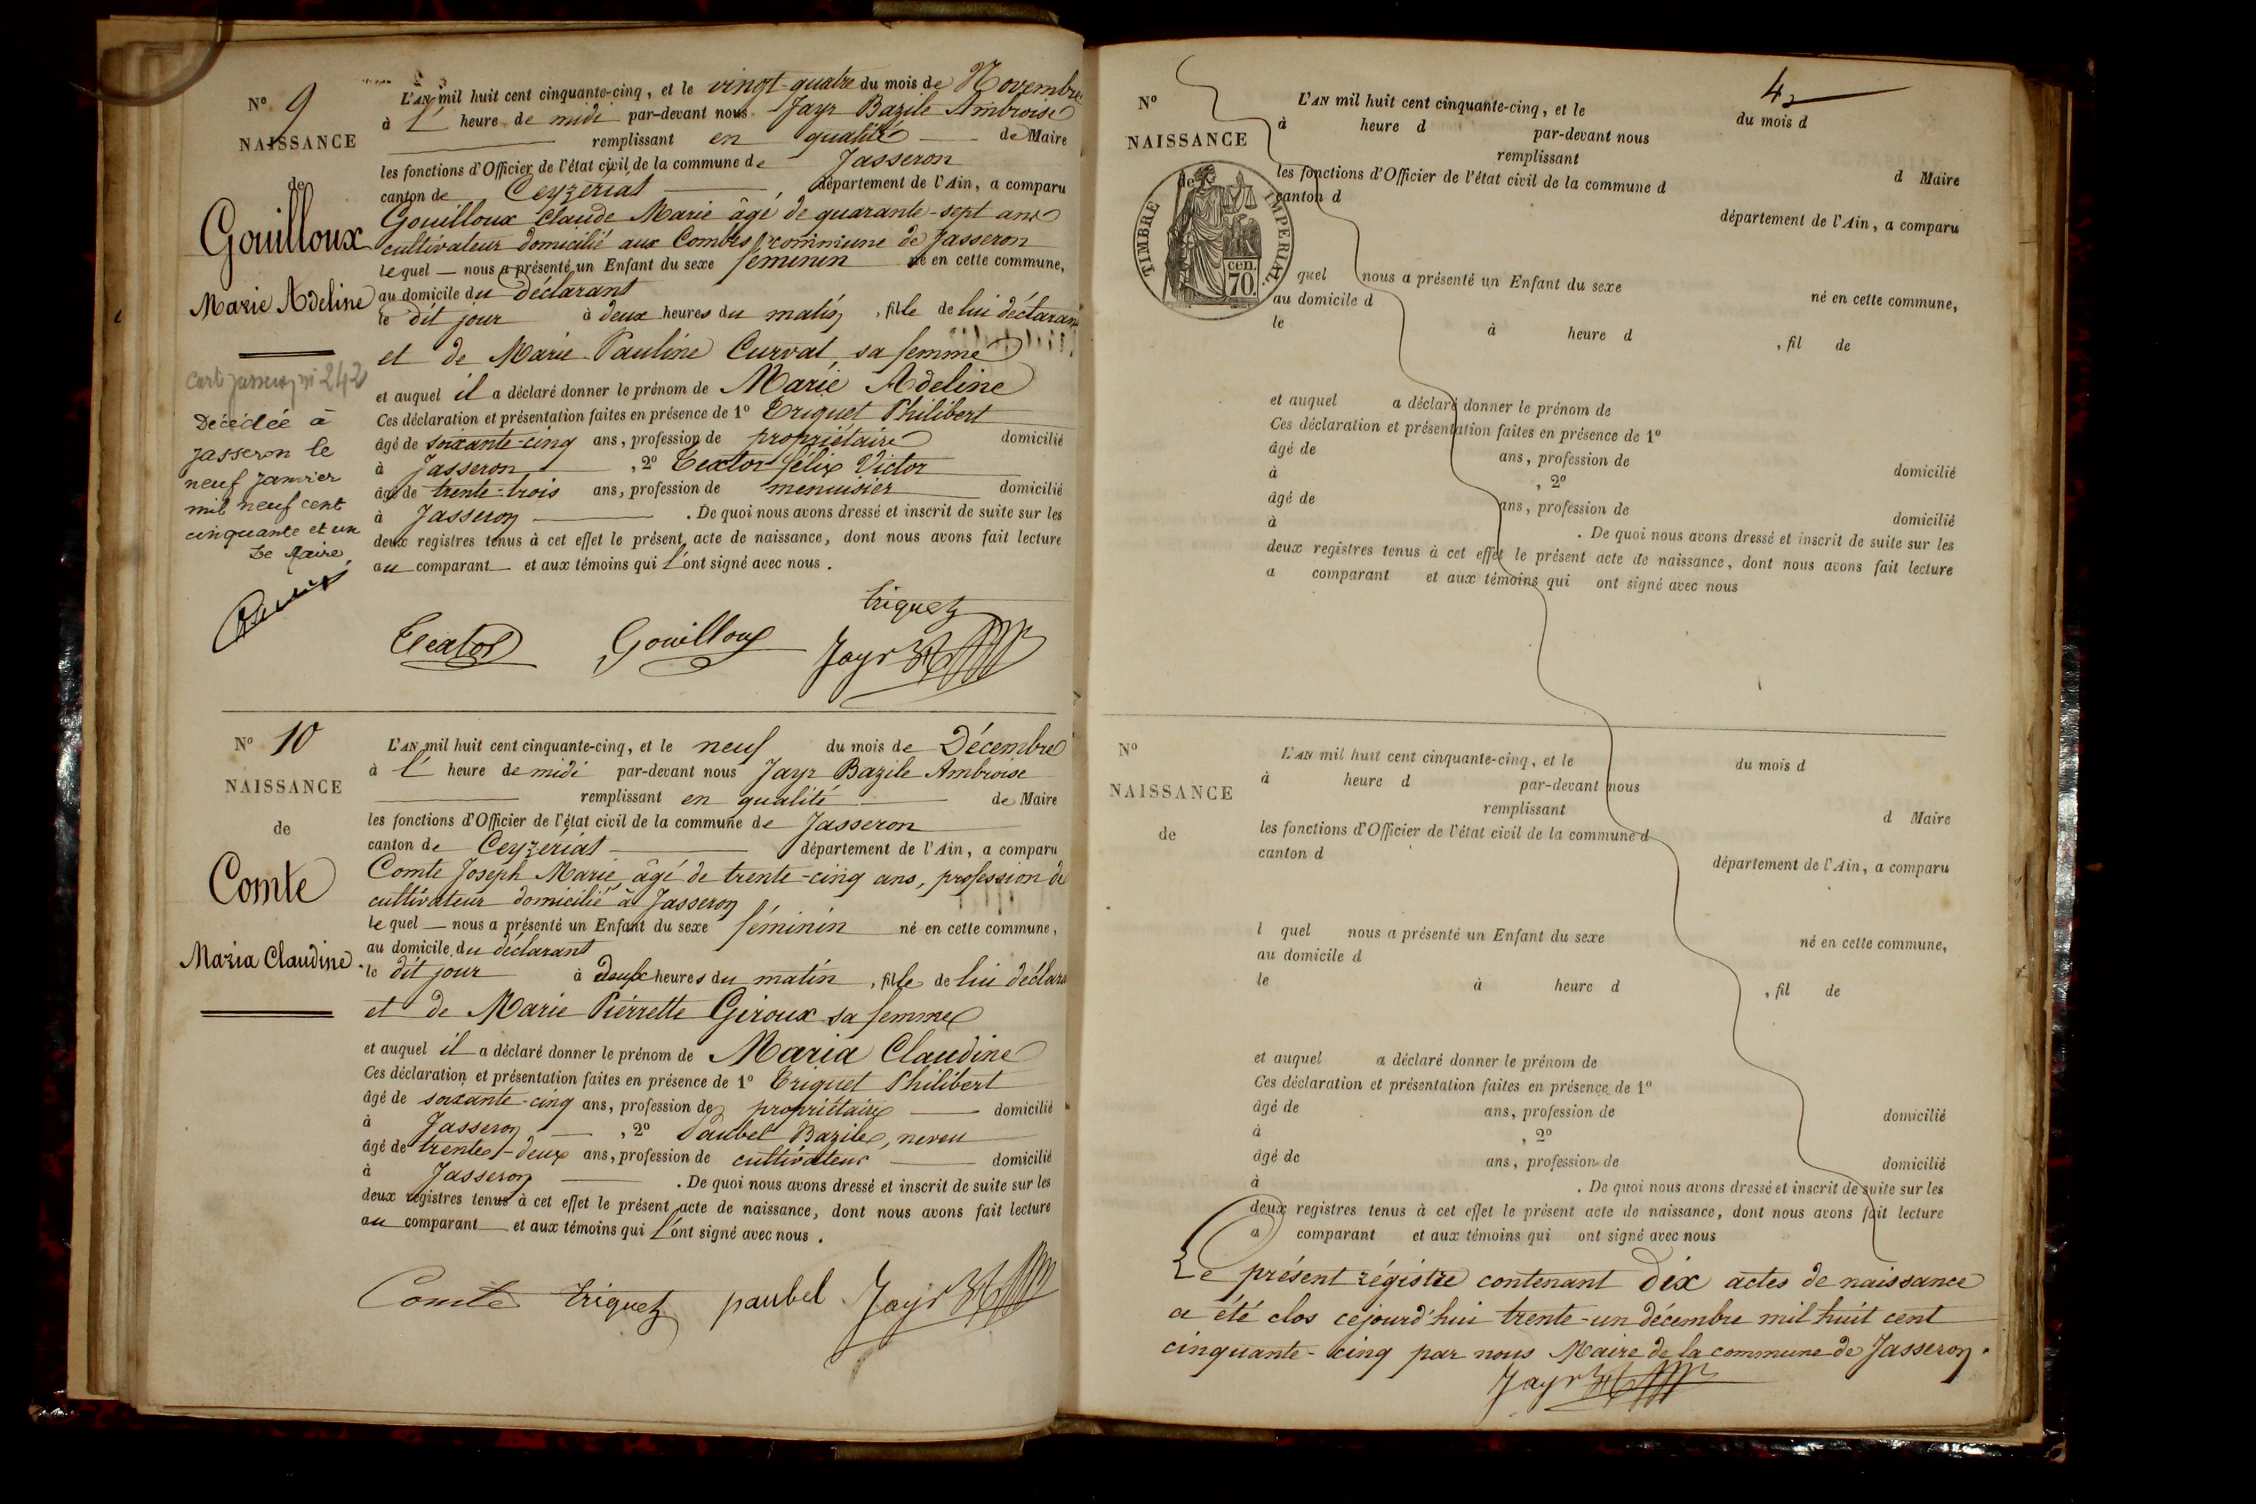 N° 9
NAISSANCE
de
Gouilloux
Marie Adeline
Décédée à
Jasseron le
neuf Janvier
mil neuf cent
cinquante et un
Le Maire,
L'AN mil huit cent cinquante-cinq, et le vingt-quatre du mois de Novembre
à l' heure de midi par-devant nous Jayr Bazile Ambroise
remplissant en qualité de Maire
les fonctions d'Officier de l'état civil de la commune de Jasseron
canton de Ceyzériat département de l'Ain, a comparu
Gouilloux Claude Marie âgé de quarante-sept ans
cultivateur domicilié aux Combes commune de Jasseron
lequel nous a présenté un Enfant du sexe féminin né en cette commune,
au domicile du déclarant
le dit jour à deux heures du matin, fille de lui déclarant
et de Marie Pauline Curvat sa femme
et auquel il a déclaré donner le prénom de Marie Adeline
Ces déclaration et présentation faites en présence de 1° Triquet Philibert
âgé de soixante-cinq ans, profession de propriétaire domicilié
à Jasseron, 2° Texton Félix Victor
âgé de trente-trois ans, profession de menuisier domicilié
à Jasseron . De quoi nous avons dressé et inscrit de suite sur les
deux registres tenus à cet effet le présent acte de naissance, dont nous avons fait lecture
au comparant et aux témoins qui l'ont signé avec nous.
triquet
Texton Gouilloux Jayr
N° 10
NAISSANCE
de
Comte
Maria Claudine
L'AN mil huit cent cinquante-cinq, et le neuf du mois de Décembre
à l' heure de midi par-devant nous Jayr Bazile Ambroise
remplissant en qualité de Maire
les fonctions d'Officier de l'état civil de la commune de Jasseron
canton de Ceyzériat département de l'Ain, a comparu
Comte Joseph Marie âgé de trente-cinq ans, profession de
cultivateur domicilié à Jasseron
lequel nous a présenté un Enfant du sexe féminin né en cette commune,
au domicile du déclarant
le dit jour à deux heures du matin, fille de lui déclara
et de Marie Pierrette Giroux sa femme
et auquel il a déclaré donner le prénom de Maria Claudine
Ces déclaration et présentation faites en présence de 1° Triquet Philibert
âgé de soixante-cinq ans, profession de propriétaire domicilié
à Jasseron, 2° Paubel Bazile, neveu
âgé de trente-deux ans, profession de cultivateur domicilié
à Jasseron . De quoi nous avons dressé et inscrit de suite sur les
deux registres tenus à cet effet le présent acte de naissance, dont nous avons fait lecture
au comparant et aux témoins qui l'ont signé avec nous.
Comte triquet paubel Jayr
N°
NAISSANCE
de
TIMBRE IMPÉRIAL
70 cen.
L'AN mil huit cent cinquante-cinq, et le du mois d
à heure d par-devant nous
remplissant d Maire
les fonctions d'Officier de l'état civil de la commune d
canton d département de l'Ain, a comparu
quel nous a présenté un Enfant du sexe né en cette commune,
au domicile d
le à heure d , fil de
et auquel a déclaré donner le prénom de
Ces déclaration et présentation faites en présence de 1°
âgé de ans, profession de domicilié
à , 2°
âgé de ans, profession de domicilié
à . De quoi nous avons dressé et inscrit de suite sur les
deux registres tenus à cet effet le présent acte de naissance, dont nous avons fait lecture
a comparant et aux témoins qui ont signé avec nous
N°
NAISSANCE
de
L'AN mil huit cent cinquante-cinq, et le du mois d
à heure d par-devant nous
remplissant d Maire
les fonctions d'Officier de l'état civil de la commune d
canton d département de l'Ain, a comparu
l quel nous a présenté un Enfant du sexe né en cette commune,
au domicile d
le à heure d , fil de
et auquel a déclaré donner le prénom de
Ces déclaration et présentation faites en présence de 1°
âgé de ans, profession de domicilié
à , 2°
âgé de ans, profession de domicilié
à . De quoi nous avons dressé et inscrit de suite sur les
deux registres tenus à cet effet le présent acte de naissance, dont nous avons fait lecture
a comparant et aux témoins qui ont signé avec nous
Le présent régistre contenant dix actes de naissance
a été clos cejourd'hui trente-un décembre mil huit cent
cinquante-cinq par nous Maire de la commune de Jasseron.
Jayr